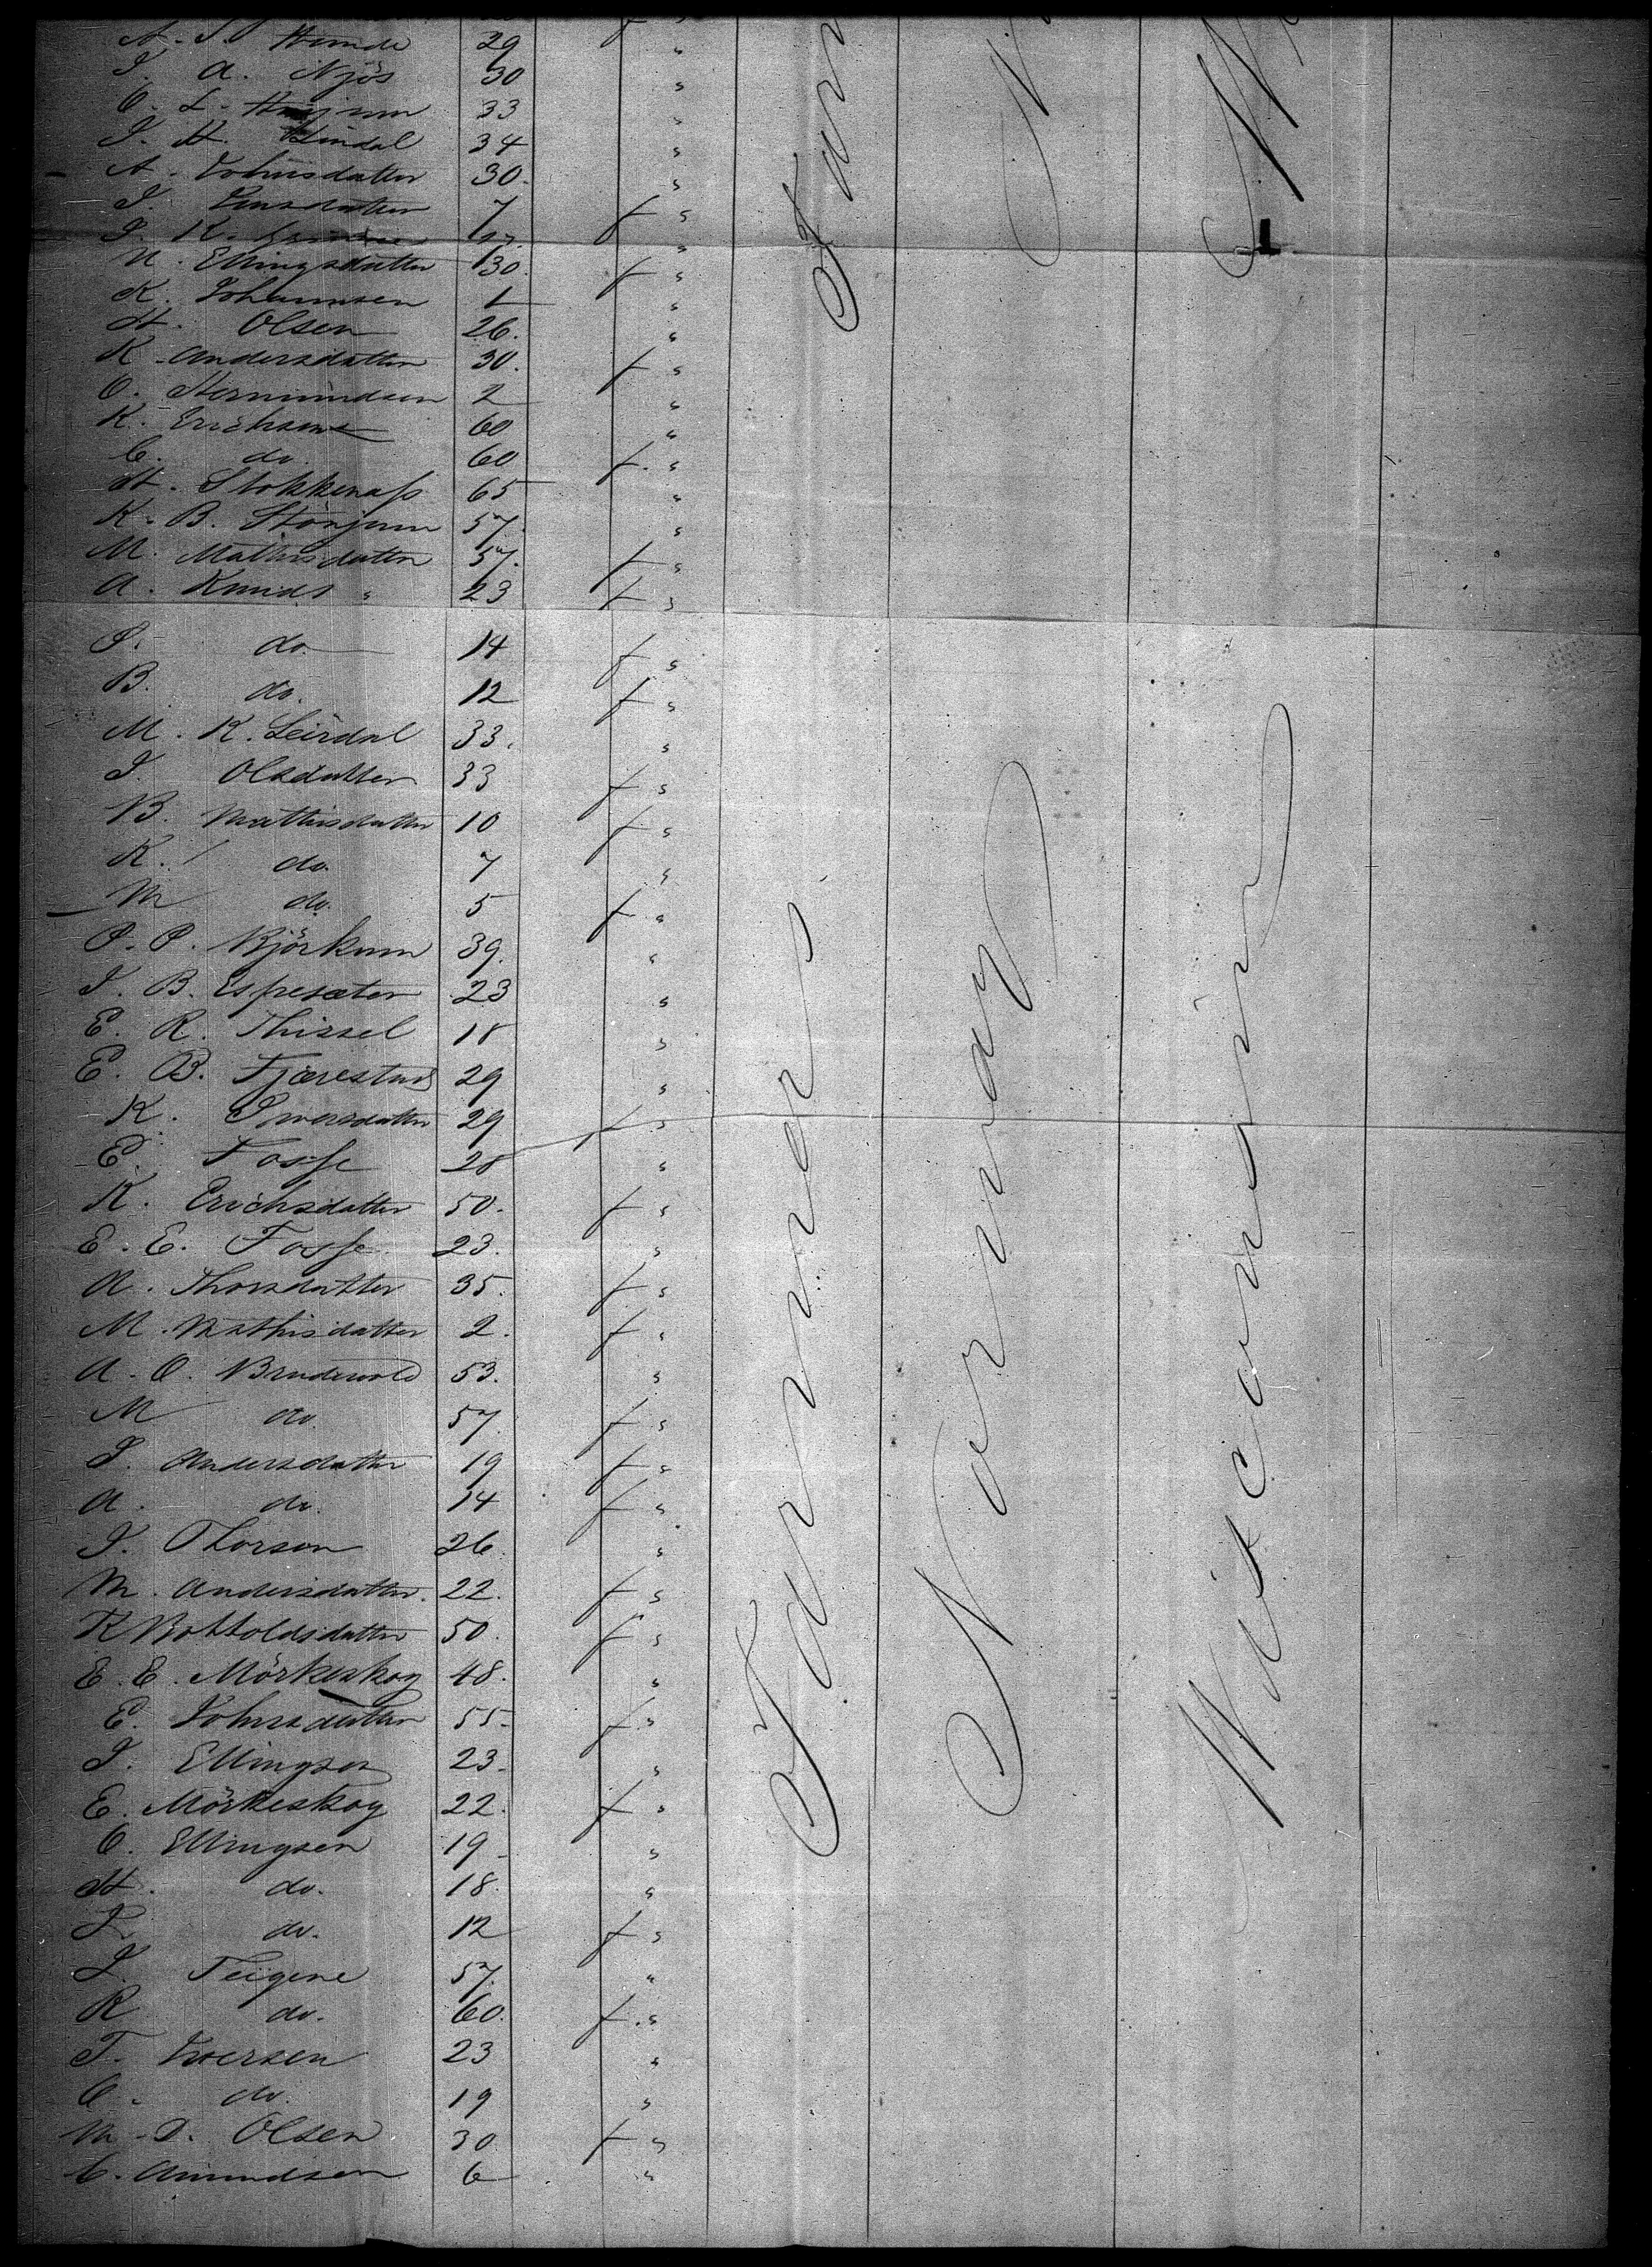 A. S. Hunde 29 "
I. A. Njös 30 "
O. L. 33 "
I. H. Lindal 34 "
A. Johnsdatter 30. "
I. Jensdatter 7 f "
I. K. "
N. Ellingsdatter 30. f "
K. Johannesen 1 "
H. Olsen 26. "
K. Andersdatter 30. f "
O. Hermundsen 2 "
K. Erichsen 60 "
C. do. 60 f. "
H. Stokkenæss 65 "
K. B. Störjum 57. "
M. Mathisdatter 57. f "
A. Knuds " 23 f "
P. do. 14 f "
B. do. 12 f "
M. K. Leirdal 33. "
I. Olsdatter 33 f "
B. Mathisdatter 10 f "
K. do. 7 "
M do. 5 f "
O. P. Björkum 39. "
I. B. Espesæter 23 "
E. R. Thissel 18 "
E. B. Fjærestad 29 "
K. Iversdatter 29 f "
E. Fosse 28 "
K. Erichsdatter 50. f "
E. E. Fosse 23. "
A. Thorsdatter 35. f "
M. Mathisdatter 2. f "
A. O. Brudevold 53. "
M do. 57. f "
I. Andersdatter 19 f "
A. do. 14 f "
I. Thorson 26. "
M. Andersdatter. 22. f "
K Bottoldsdatter 50. f "
E. E. Mörkeskog 48. "
E. Johnsdatter 55. f "
I. Ellingsen 23. "
E. Mörkeskog 22. f "
O. Ellingsen 19 "
H. do. 18. "
I. do. 12 f "
L. Teigene 57. "
R do. 60. f. "
T. Iversen 23 "
O. do. 19 "
M. D. Olsen 30 f "
C. Amundsen 6 "
Farmers
Norway
Wisconsin